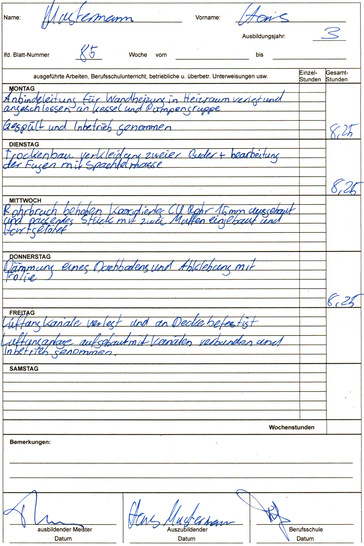 Name: Mustermann Vorname: Hans
Ausbildungsjahr: 3
lfd. Blatt-Nummer 85 Woche vom bis Gesamt-Stunden
ausgeführte Arbeiten, Berufsschulunterricht, betriebliche u. überbetr. Unterweisungen usw. Einzel-Stunden
MONTAG
Anbindeleitung für Wandheizung in Heizraum verlegt und
angeschlossen an Kessel und Pumpengruppe
Gespült und Inbetrieb genommen 8,25
DIENSTAG
Trockenbau verkleidung zweier + bearbeitung
der Fugen mit Spachtelmasse
8,25
MITTWOCH
Rohrbruch behoben CU Rohr 15mm ausgebaut
und passendes Stück mit zwei Muffen eingebaut und
DONNERSTAG
Dämmung eines Dachbodens und Abklebung mit
Folie
8,25
FREITAG
Lüftungskanäle verlegt und an Decke befestigt
Lüftungsanlage aufgebaut mit Kanälen verbunden und
Inbetrieb genommen.
SAMSTAG
Wochenstunden
Bemerkungen:
Hans Mustermann
ausbildender Meister Auszubildender Berufsschule
Datum Datum Datum